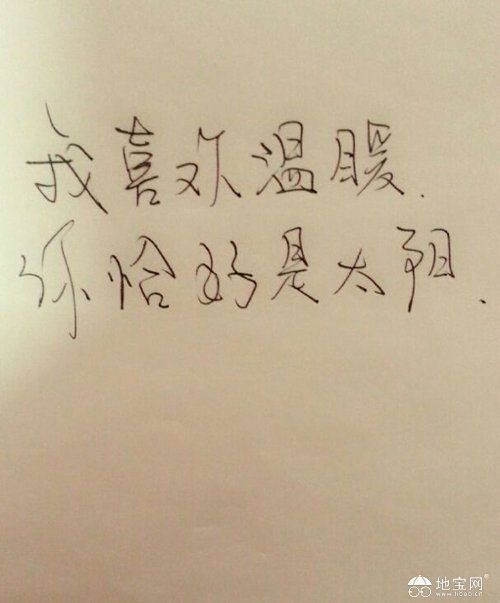 我喜欢温暖.
你恰好是太阳.
地宝网